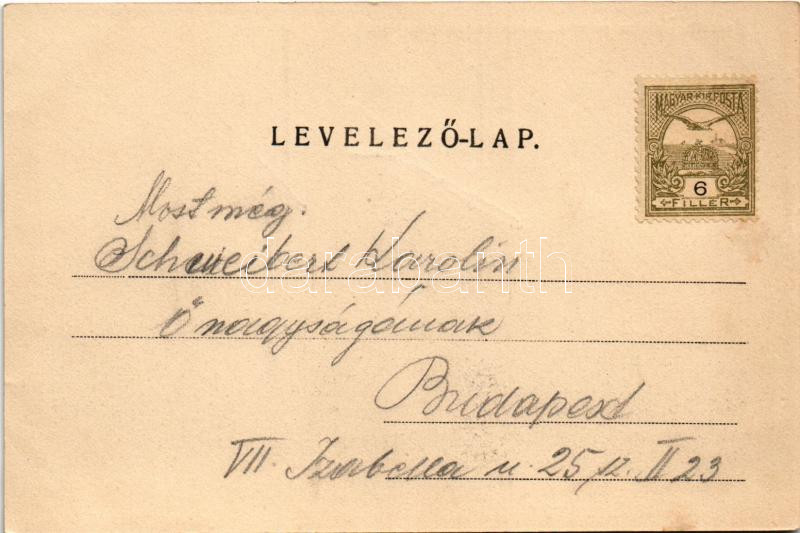 MAGYAR KIR. POSTA
6
FILLER
LEVELEZŐ-LAP.
Most még.
Schweibert Karolin
Ő nagyságának
Budapest
VII. Izabella u. 25 sz. II 23
darabanth